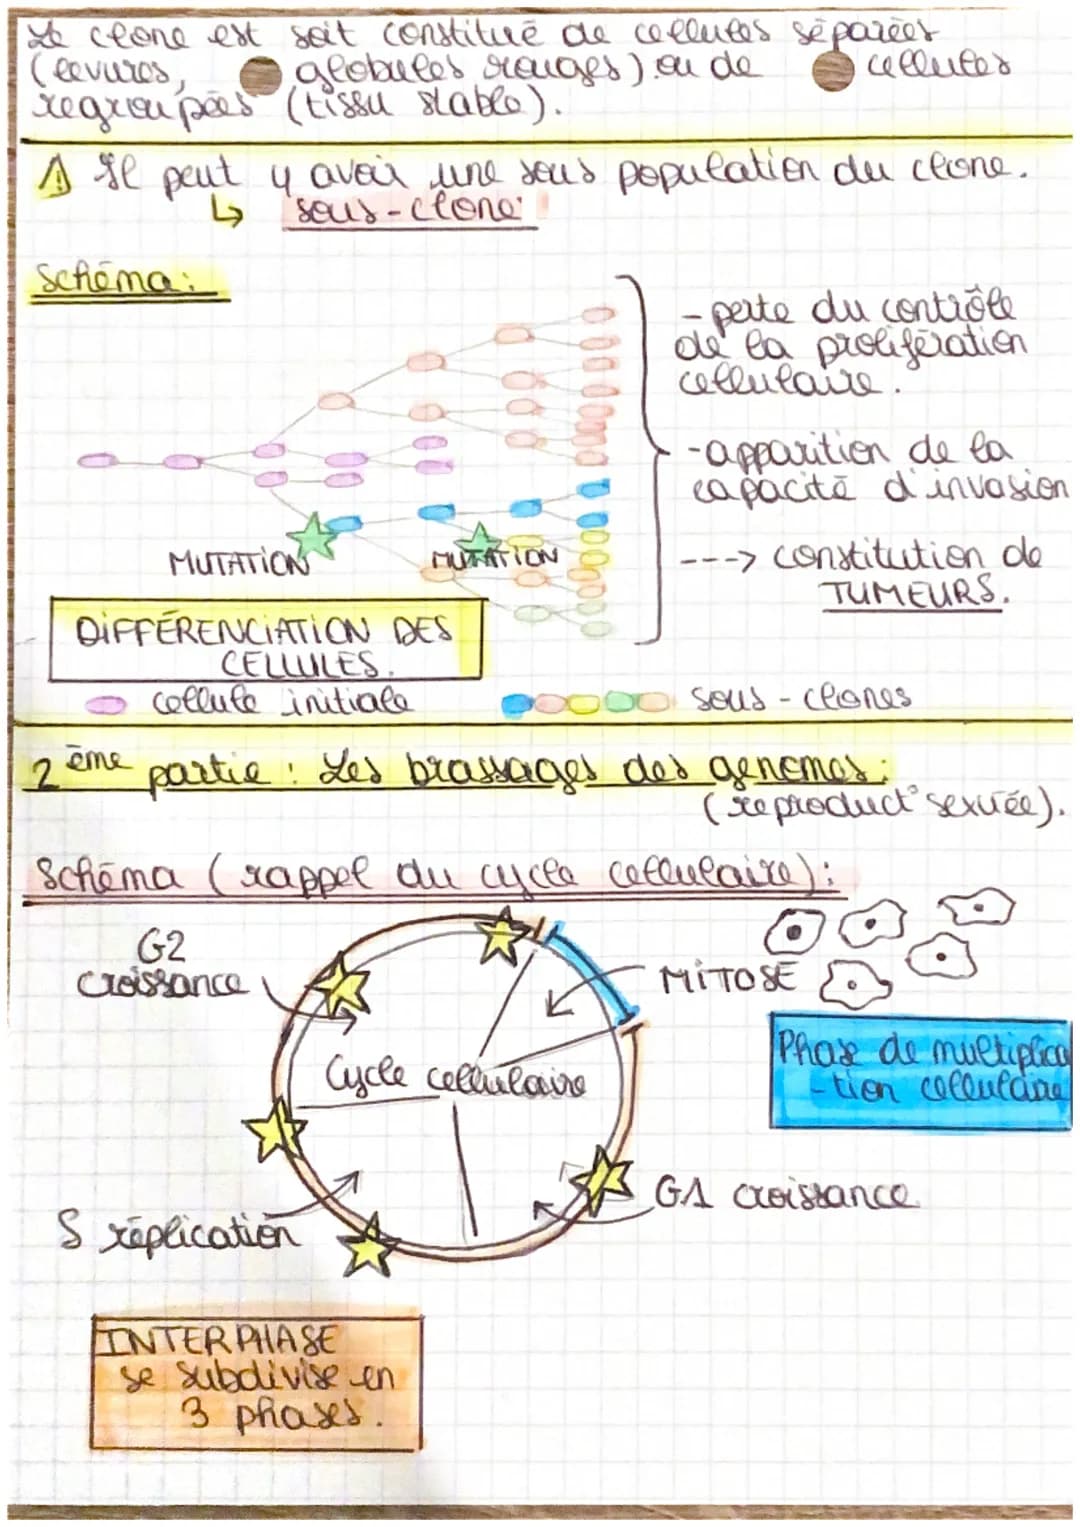 Le clone est soit constitué de cellules séparées
(levures, globules rouges) ou de cellules
regroupées (tissu stable).
⚠ Il peut y avoir une sous population du clone.
↳ sous-clone
Schéma:
- perte du contrôle
de la prolifération
cellulaire.
- apparition de la
capacité d'invasion
---> constitution de
TUMEURS.
MUTATION
MUTATION
DIFFÉRENCIATION DES
CELLULES.
cellule initiale
sous-clones
2ème partie : Les brassages des genomes:
(reproduct° sexuée).
Schéma (rappel du cycle cellulaire):
G2
croissance
MITOSE
Phase de multiplica
-tion cellulaire
Cycle cellulaire
G1 croissance
S réplication
INTERPHASE
se subdivise en
3 phases.